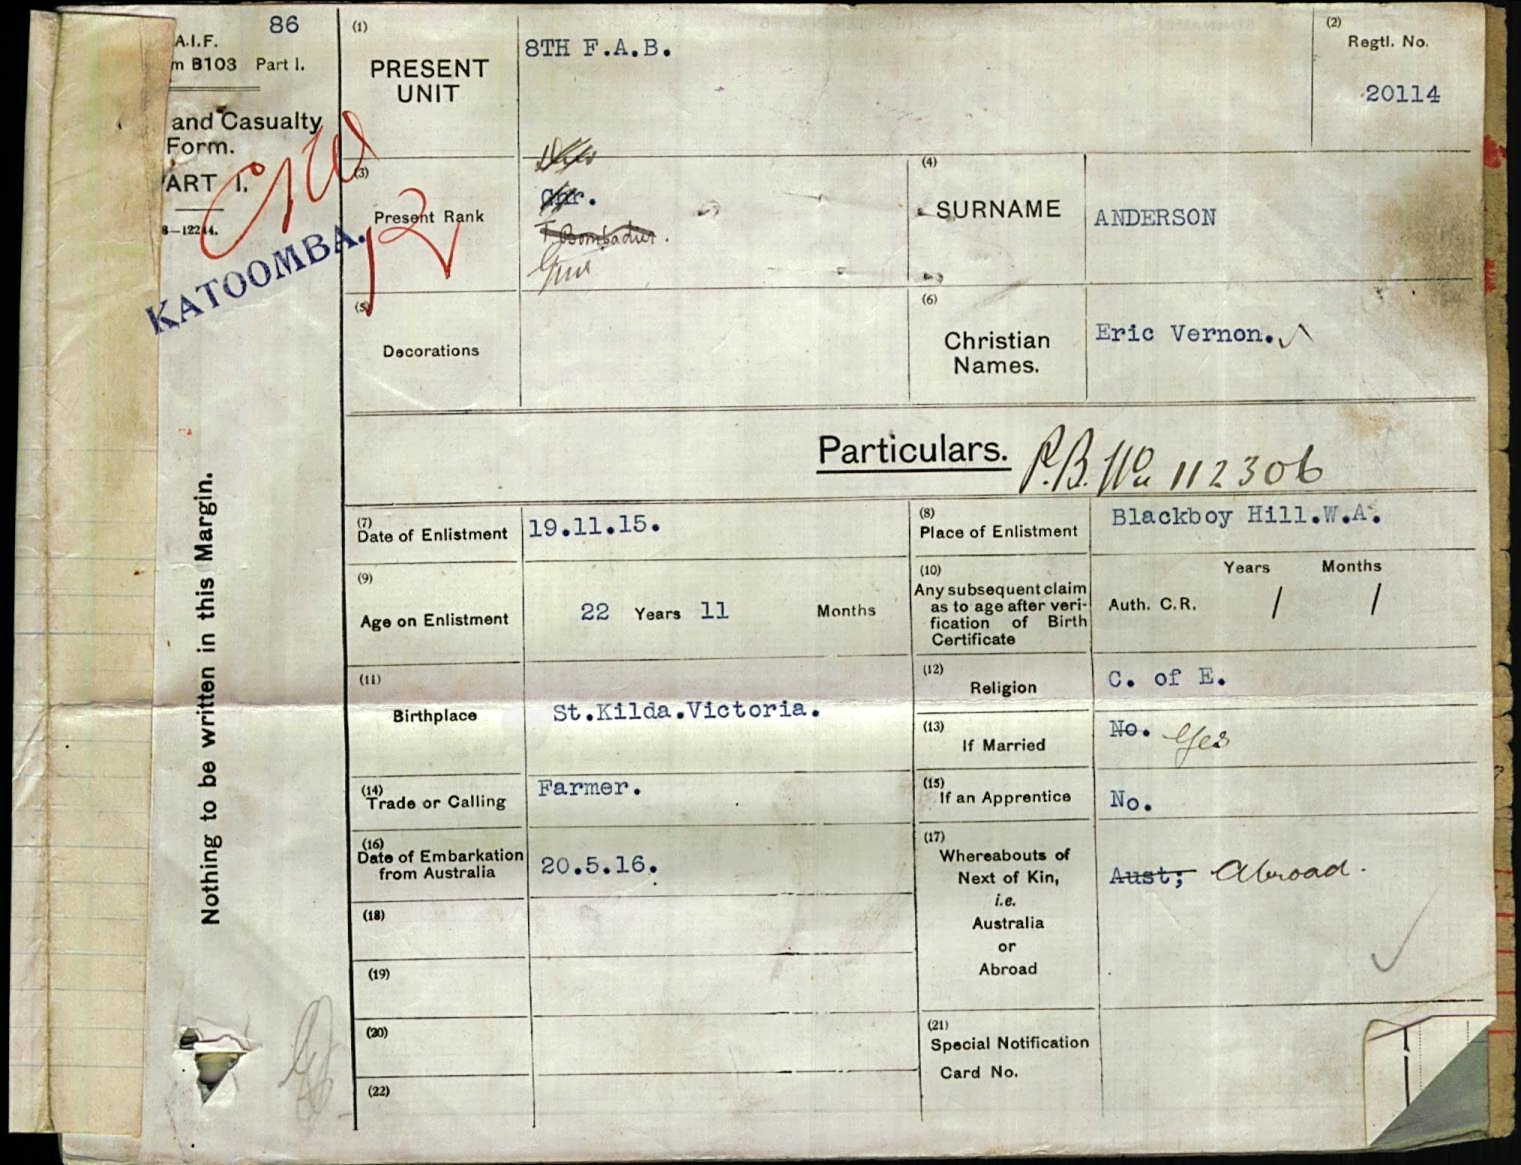 86
A.I.F.
m B103 Part I.
and Casualty
Form.
ART I.
8—12214.
KATOOMBA.
Nothing to be written in this Margin.
(1)
PRESENT
UNIT
8TH F.A.B.
(2)
Regtl. No.
20114
(3)
Present Rank
Gnr.
T. Bombadier.
Gnr
(4)
SURNAME
ANDERSON
(5)
Decorations
(6)
Christian
Names.
Eric Vernon.
Particulars.
P.B. No 112306
(7)
Date of Enlistment
19.11.15.
(8)
Place of Enlistment
Blackboy Hill.W.A.
(9)
Age on Enlistment
22 Years 11 Months
(10)
Any subsequent claim
as to age after veri-
fication of Birth
Certificate
Years Months
Auth. C.R. / /
(11)
Birthplace
St.Kilda.Victoria.
(12)
Religion
C. of E.
(13)
If Married
No. Yes
(14)
Trade or Calling
Farmer.
(15)
If an Apprentice
No.
(16)
Date of Embarkation
from Australia
20.5.16.
(17)
Whereabouts of
Next of Kin,
i.e.
Australia
or
Abroad
Aust; Abroad.
(18)
(19)
(20)
(21)
Special Notification
Card No.
(22)